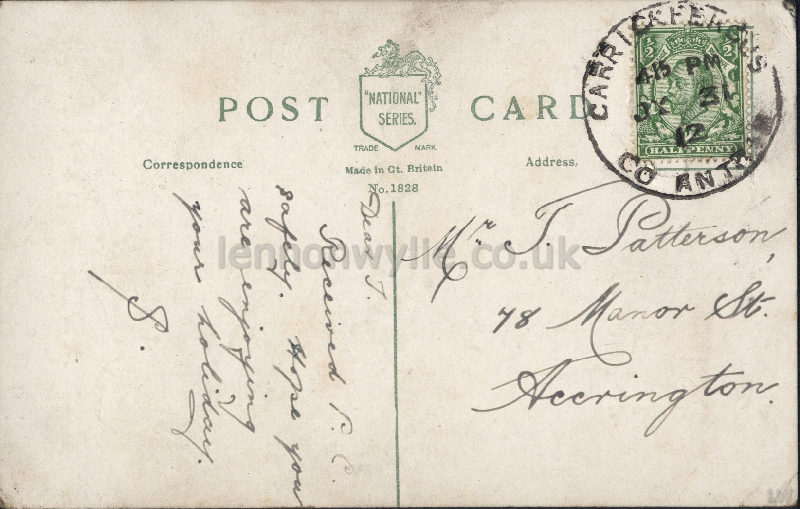 POST CARD
"NATIONAL"
SERIES.
TRADE MARK
Correspondence
Made in Gt. Britain
Address.
No. 1828
CARRICKFERGUS
4.15 PM
31
12
CO ANTRIM
½ ½
HALFPENNY
Dear J.
Received P. C.
safely. Hope you
are enjoying
your holiday.
S.
Mr J. Patterson,
78 Manor St.
Accrington.
lennonwylie.co.uk